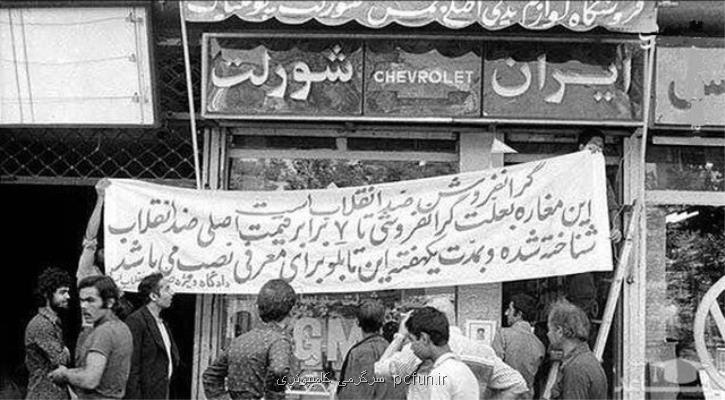 فروشگاه لوازم یدکی اصلی جمس شورلت بیوک
ایران
CHEVROLET
شورلت
گرانفروش ضد انقلاب است
این مغازه بعلت گرانفروشی تا ۷ برابر قیمت اصلی ضد انقلاب
شناخته شده و بمدت یکهفته این تابلو برای معرفی نصب می باشد
دادگاه ویژه
GM
سرگرمی کامپیوتری pcfun.ir
ساعد